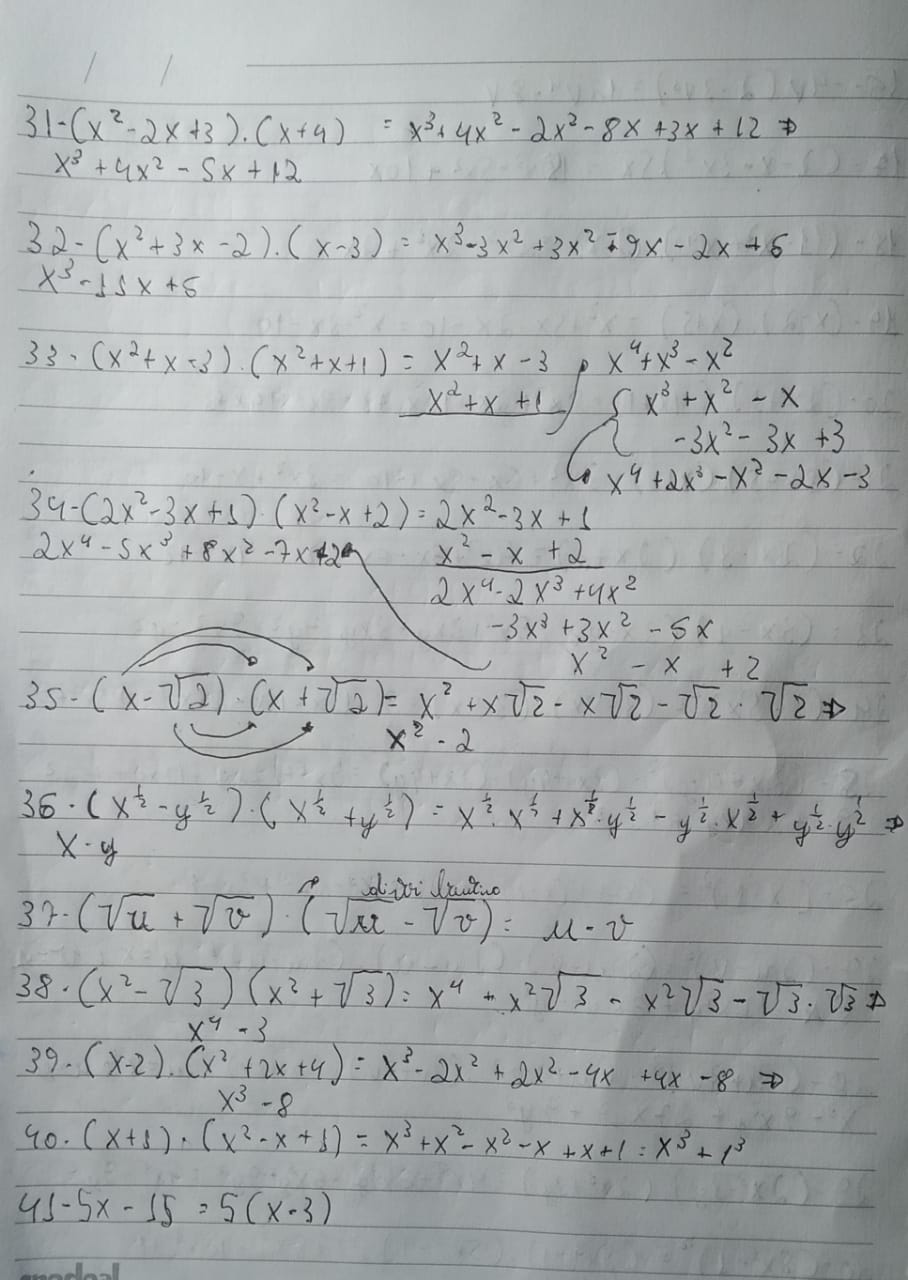 / /
31-(x²-2x+3).(x+4) = x³+4x²-2x²-8x+3x+12 ⇒
x³+4x²-5x+12
32-(x²+3x-2).(x-3) = x³-3x²+3x²-9x-2x+6
x³-11x+6
33-(x²+x-3).(x²+x+1) = x²+x-3 x⁴+x³-x²
x²+x+1 x³+x²-x
-3x²-3x+3
x⁴+2x³-x²-2x-3
34-(2x²-3x+1).(x²-x+2)=2x²-3x+1
2x⁴-5x³+8x²-7x+2 x²-x+2
2x⁴-2x³+4x²
-3x³+3x²-6x
x²-x+2
35-(x-√2).(x+√2)= x²+x√2-x√2-√2.√2 ⇒
x²-2
36-(x^½-y^½).(x^½+y^½)= x^½.x^½+x^½.y^½-y^½.x^½+y^½.y^½ ⇒
x-y
distributivo
37-(√u+√v).(√u-√v)= u-v
38-(x²-√3)(x²+√3)= x⁴+x²√3-x²√3-√3.√3 ⇒
x⁴-3
39-(x-2).(x²+2x+4)= x³-2x²+2x²-4x+4x-8 ⇒
x³-8
40.(x+1).(x²-x+1)= x³+x²-x²-x+x+1 = x³+1³
41-5x-15 = 5(x-3)